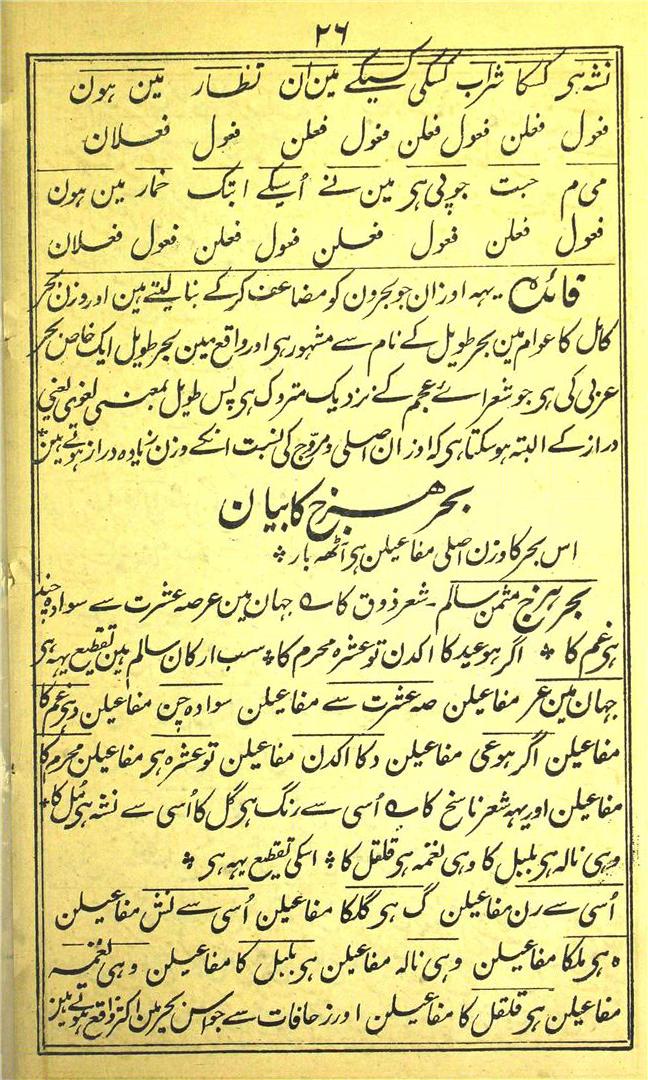 ۲۶
نشہ ہی کسکا شراب کسکی کسیکے مین ان تظار مین ہون
فعول فعلن فعول فعلن فعول فعلن فعول فعلان
می م حبت جو پی ہی مین نے اُسیکے ابتک خمار مین ہون
فعول فعلن فعول فعلن فعول فعلن فعول فعلان
فائدہ یہہ اوزان جو بحرون کو مضاعف کر کے بنا لیتے ہین اور وزن بحر
کامل کا عوام مین بحر طویل کے نام سے مشہور ہی اور واقع مین بحر طویل ایک خاص بحر
عربی کی ہی جو شعرائے عجم کے نزدیک متروک ہی پس طویل بمعنی لغوی یعنی
دراز کے البتہ ہو سکتا ہی کہ اوزان اصلی و مروّج کی نسبت انکے وزن زیادہ دراز ہوتے ہین *
بحر ھزج کا بیان
اس بحر کا وزن اصلی مفاعیلن ہی آٹھہ بار *
بحر ہزج مثمن سالم۔ شعر ذوق کا ؎ جہان مین عرصہ عشرت سے سوا دہ چند
ہی غم کا * اگر ہو عید کا اکدن تو عشرہ محرم کا * سب ارکان سالم ہین تقطیع یہہ ہی
جہان مین عر مفاعیلن صہ عشرت سے مفاعیلن سوا دہ چن مفاعیلن د ہی غم کا
مفاعیلن اگر ہو عی مفاعیلن د کا اکدن مفاعیلن تو عشرہ ہی مفاعیلن محرم کا
مفاعیلن اور یہہ شعر ناسخ کا ؎ اُسی سے رنگ ہی گل کا اُسی سے نشہ ہی مُل کا *
وہی نالہ ہی بلبل کا وہی نغمہ ہی قلقل کا * اسکی تقطیع یہہ ہی *
اُسی سے رن مفاعیلن گ ہی گلکا مفاعیلن اُسی سے نش مفاعیلن
ہ ہی ملکا مفاعیلن وہی نالہ مفاعیلن ہی بلبل کا مفاعیلن وہی نغمہ
مفاعیلن ہی قلقل کا مفاعیلن اور زحافات سے جو اس بحر مین اکثر واقع ہوتے ہین